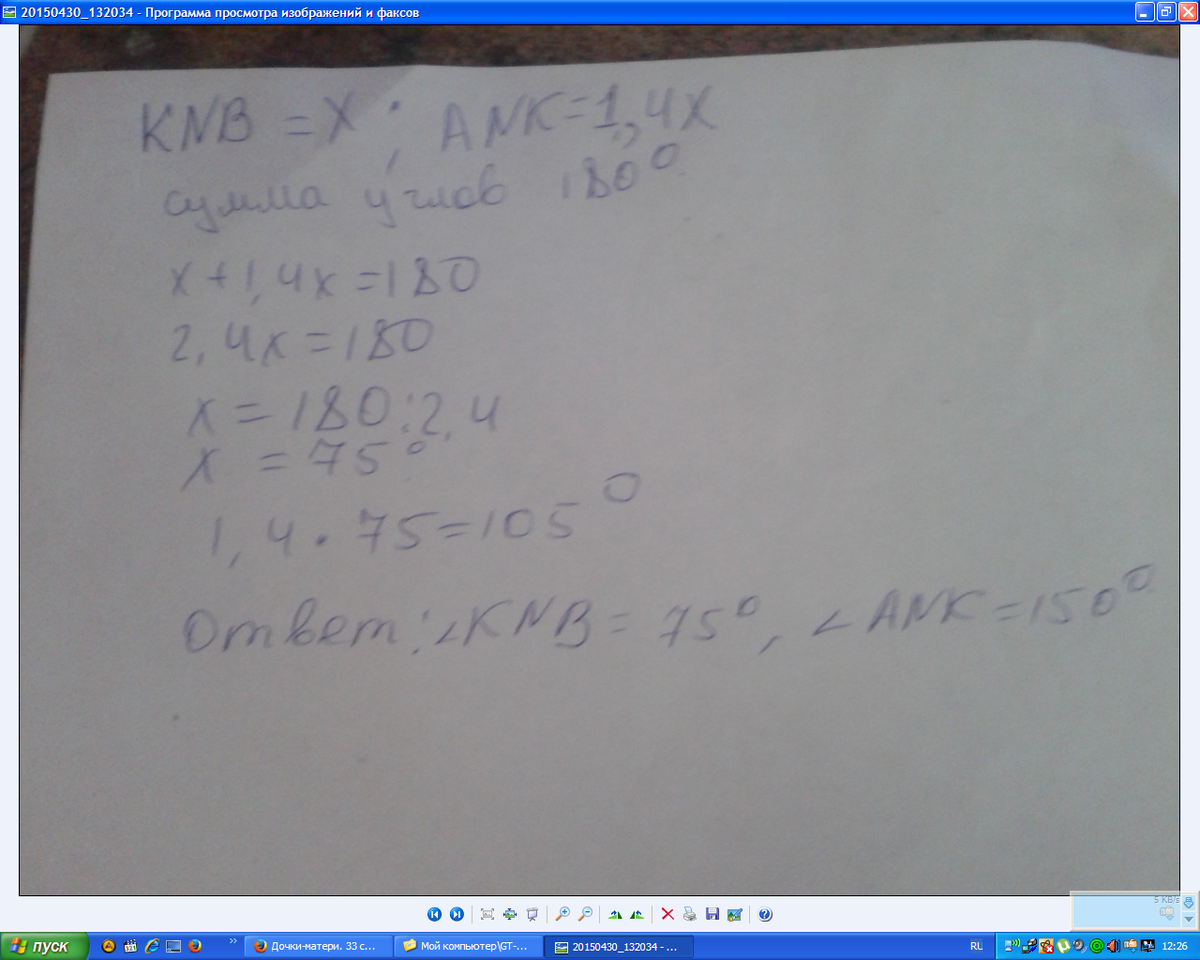 20150430_132034 - Программа просмотра изображений и факсов
KNB = X ; ANK = 1,4X
сумма углов 180°
x + 1,4x = 180
2,4x = 180
x = 180 : 2,4
x = 75°
1,4 · 75 = 105°
Ответ: ∠KNB = 75°, ∠ANK = 150°
5 KB/s
пуск
Дочки-матери. 33 с...
Мой компьютер\GT-...
20150430_132034 - ...
RU
12:26